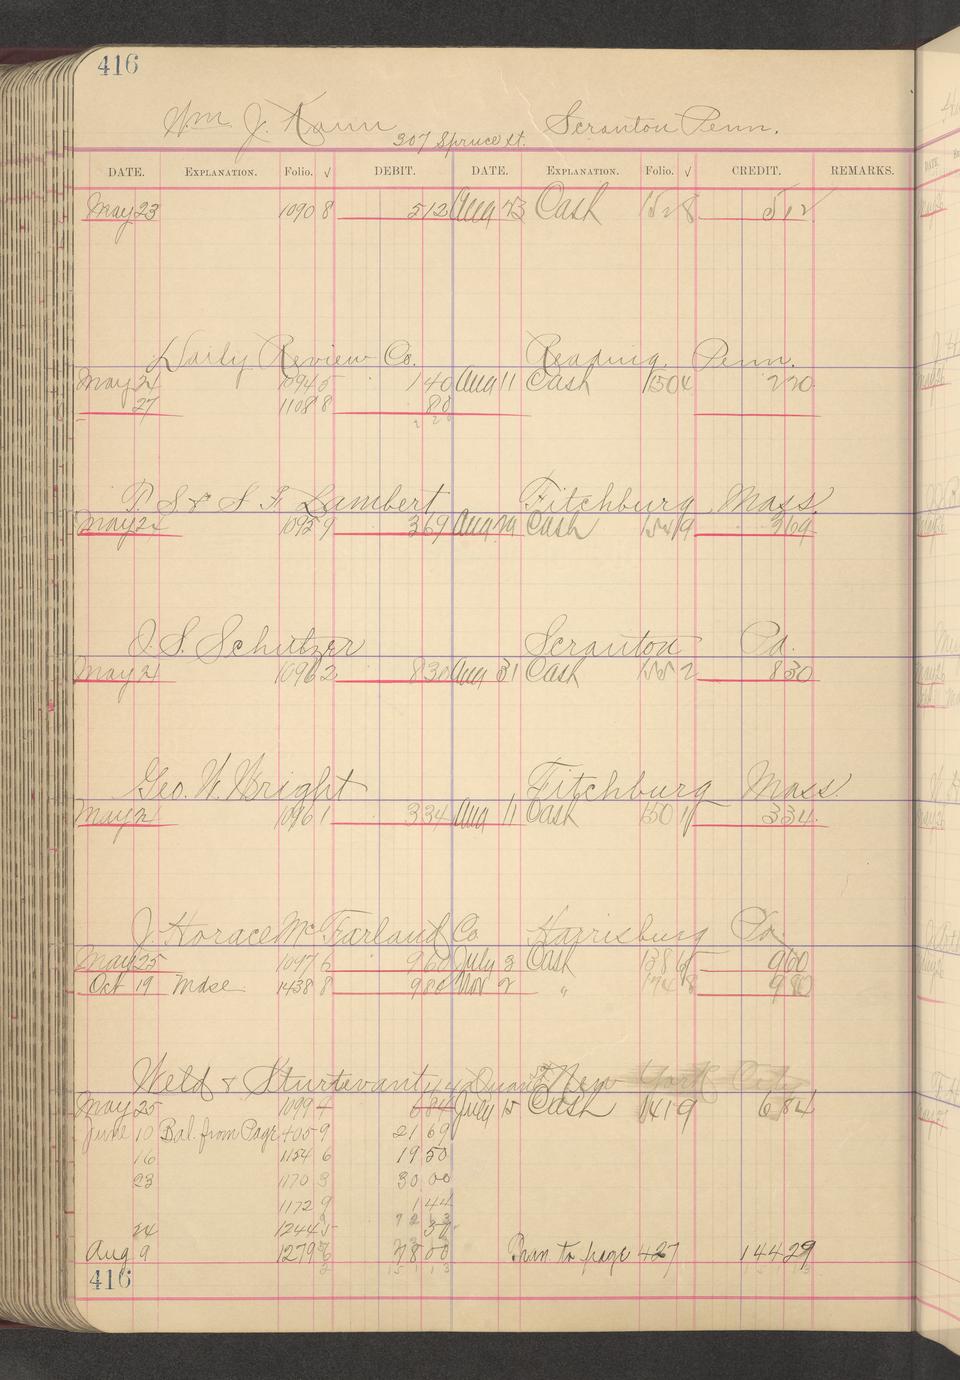 416
Wm J. Kann Scranton Penn.
307 Spruce st.
DATE. EXPLANATION. Folio. √ DEBIT. DATE. EXPLANATION. Folio. √ CREDIT. REMARKS.
May 23 1090 8 512 Aug 23 Cash 152 8 512
Daily Review Co. Reading. Penn.
May 24 1094 5 140 Aug 11 Cash 150 4 220
27 1108 8 80
2 20
P. S & A F Lambert Fitchburg Mass.
May 24 1095 9 369 Aug 29 Cash 154 9 369
J. S. Schutzer Scranton Pa.
May 24 1096 2 830 Aug 31 Cash 155 2 830
Geo. W. Wright Fitchburg Mass.
May 24 1096 1 334 Aug 11 Cash 150 1 334
J. Horace McFarland Co Harrisburg Pa.
May 25 1097 6 960 July 3 Cash 138 6 960
Oct 19 Mdse 1438 8 980 Nov 2 " 174 8 980
Weld & Sturtevant 44 Duane St New York City
May 25 1099 4 684 July 15 Cash 141 9 684
June 10 Bal. from Page 405 9 21 69
16 1154 6 19 50
23 1170 3 30 00
1172 9 1 44
24 1244 5
Aug 9 1279 78 00 Brn. to page 427 144 29
416